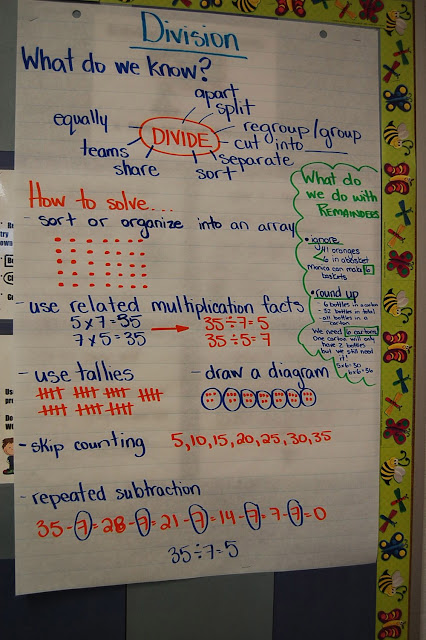 Division
What do we know?
apart
split
equally
regroup/group
DIVIDE
cut into
teams
separate
share
sort
How to solve....
- sort or organize into an array
- use related multiplication facts
5x7=35
35÷7=5
7x5=35
35÷5=7
- use tallies
- draw a diagram
- skip counting 5,10,15,20,25,30,35
- repeated subtraction
35-7=28-7=21-7=14-7=7-7=0
35÷7=5
What do
we do with
REMAINDERS
• ignore
41 oranges
6 in a basket
Monica can make 6
baskets
• round up
- 6 bottles in a carton
- 32 bottles in total
- all bottles in a
carton
We need 6 cartons
One carton will only
have 2 bottles
but we still need
it!
5x6=30
6x6=36